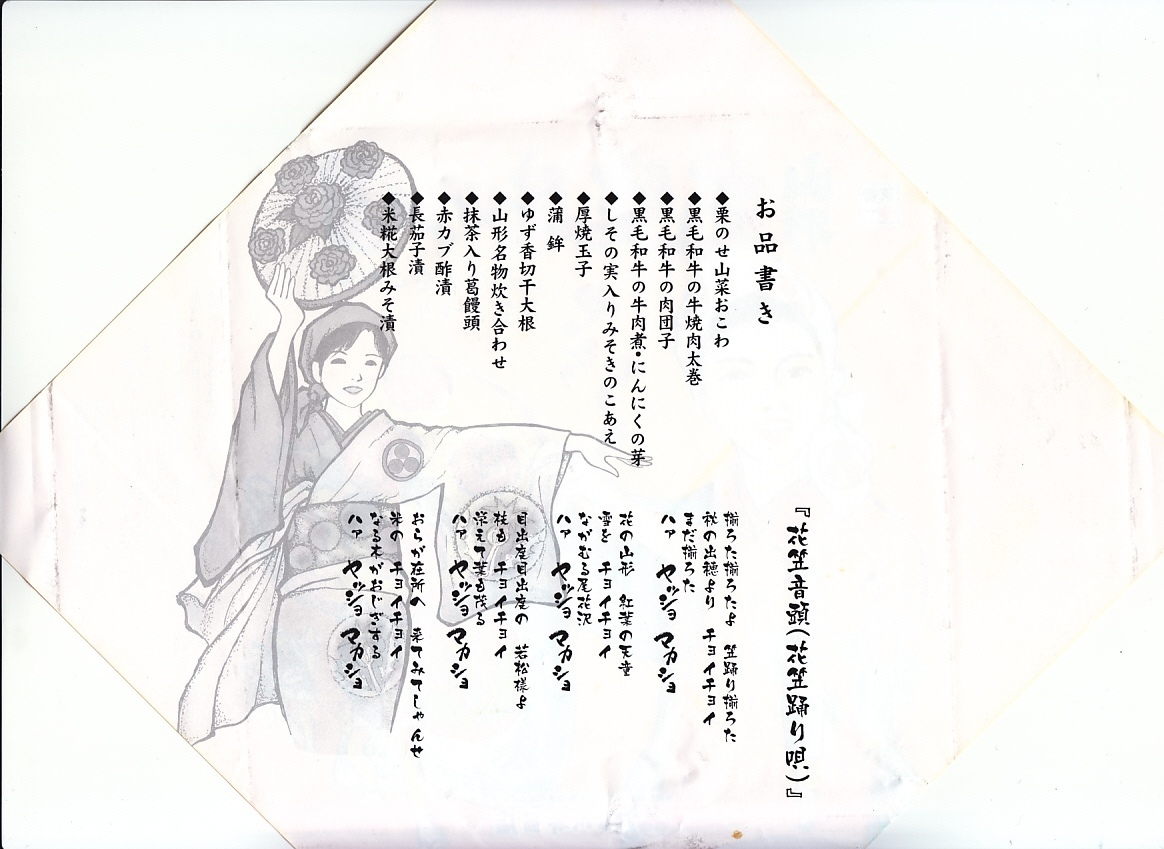 お品書き
◆栗のせ山菜おこわ
◆黒毛和牛の牛焼肉太巻
◆黒毛和牛の肉団子
◆黒毛和牛の牛肉煮・にんにくの芽
◆しその実入りみそきのこあえ
◆厚焼玉子
◆蒲鉾
◆ゆず香切干大根
◆山形名物炊き合わせ
◆抹茶入り葛饅頭
◆赤カブ酢漬
◆長茄子漬
◆米糀大根みそ漬
『花笠音頭(花笠踊り唄)』
揃ろた揃ろたよ 笠踊り揃ろた
秋の出穂より チョイチョイ
まだ揃ろた
ハァ ヤッショ マカショ
花の山形 紅葉の天童
雪を チョイチョイ
ながむる尾花沢
ハァ ヤッショ マカショ
目出度目出度の 若松様よ
枝も チョイチョイ
栄えて葉も茂る
ハァ ヤッショ マカショ
おらが在所へ 来てみてしゃんせ
米の チョイチョイ
なる木がおじぎする
ハァ ヤッショ マカショ